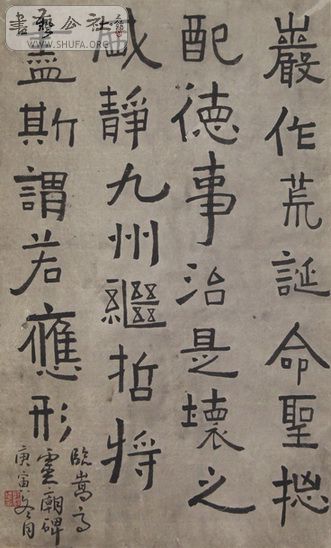 書藝公社
WWW.SHUFA.ORG
巖作荒誕命聖摠
配德事治是壞之
咸靜九州繼哲將
盖斯謂若應形
臨嵩高
靈廟碑
庚寅冬月